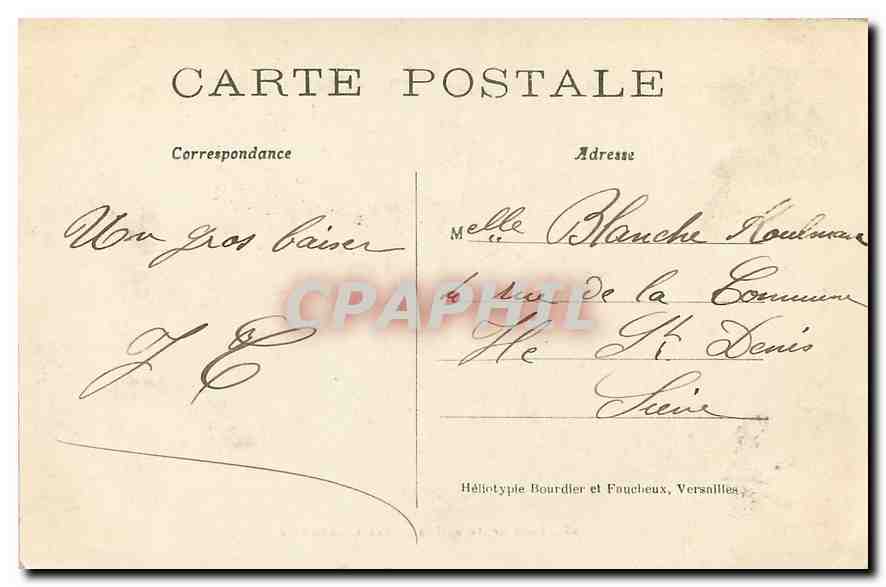 CARTE POSTALE
Correspondance
Adresse
Un gros baiser
J C
Melle Blanche
4 rue de la Commune
Ile St Denis
Seine
CPAPHIL
Héliotypie Bourdier et Faucheux, Versailles.